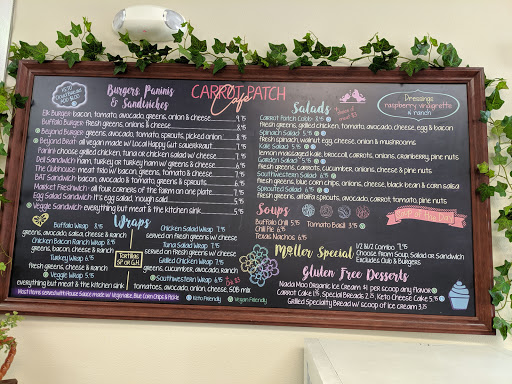 Burgers, Paninis
& Sandwiches
CARROT PATCH
Cafe
Elk Burger bacon, tomato, avocado, greens, onion & cheese 9.75
Buffalo Burger fresh greens, onions & cheese 8.75
Beyond Burger greens, avocado, tomato, sprouts, picked onion 8.75
Beyond Brat- all vegan made w/ Local Happy Gut sauerkraut 7.95
Panini grilled chicken, tuna or chicken salad w/ cheese 7.95
Deli Sandwich ham, turkey or turkey ham w/ greens & cheese 6.95
The Clubhouse meat trio w/ bacon, greens, tomato & cheese 7.95
BAT Sandwich bacon, avocado & tomato, greens & sprouts 6.95
Market Freshwich- all four corners of the farm on one plate
Egg Salad Sandwich it's egg salad, nough said 5.95
Veggie Sandwich everything but meat & the kitchen sink 5.95
Wraps
Buffalo Wrap 8.95
greens, avocado, salsa, cheese & ranch
Chicken Bacon Ranch Wrap 8.95
greens, bacon, cheese & ranch
Turkey Wrap 6.95
fresh greens, cheese & ranch
Veggie Wrap 5.95
everything but meat & the kitchen sink
TORTILLAS
SP or G.H.
Chicken Salad Wrap 7.95
served on fresh greens w/ cheese
Tuna Salad Wrap 7.95
served on fresh greens w/ cheese
Grilled Chicken Wrap 7.95
greens, cucumber, avocado, ranch
Southwestern Wrap 6.95
tomatoes, avocado, onion, cheese, SOB mix
Most items served with House Sauce made w/ Vegenaise, Blue Corn Chips & Pickle
Keto Friendly
Vegan Friendly
Salads
Dressings:
raspberry vinaigrette
& ranch
Carrot Patch Cobb 8.95
fresh greens, grilled chicken, tomato, avocado, cheese, egg & bacon
Spinach Salad
fresh spinach, walnut, egg, cheese, onion & mushrooms
Kale Salad
lemon massaged kale, broccoli, carrots, onions, cranberry, pine nuts
Garden Salad
fresh greens, carrots, cucumber, onions, cheese & pine nuts
Southwestern Salad
fresh greens, blue corn chips, onions, cheese, black bean & corn salsa
Sprouted Salad
fresh greens, alfalfa sprouts, avocado, carrots, tomato, pine nuts
Soups
Buffalo Chili 5.95
Tomato Basil 3.95
Chili Pie 6.95
Texas Nachos 6.95
Soup of the Day
Motley Special
1/2 & 1/2 Combo 7.95
Choose From Soup, Salad or Sandwich
Excludes Club & Burgers
Gluten Free Desserts
Nada Moo Organic Ice Cream $1 per scoop any flavor
Carrot Cake 1.95, Special Breads 2.25, Keto Cheese Cake 5.95
Grilled Specialty Bread w/ scoop of ice cream 3.25